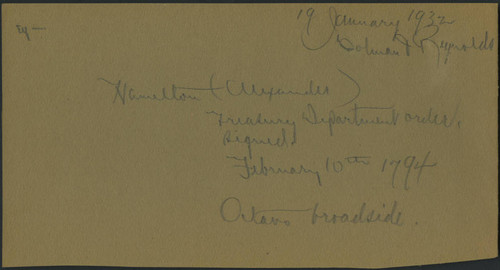 19 January 1932
Dolman & Reynolds
Hamilton (Alexander)
Treasury Department order.
signed.
February 10th 1794
Octavo broadside.